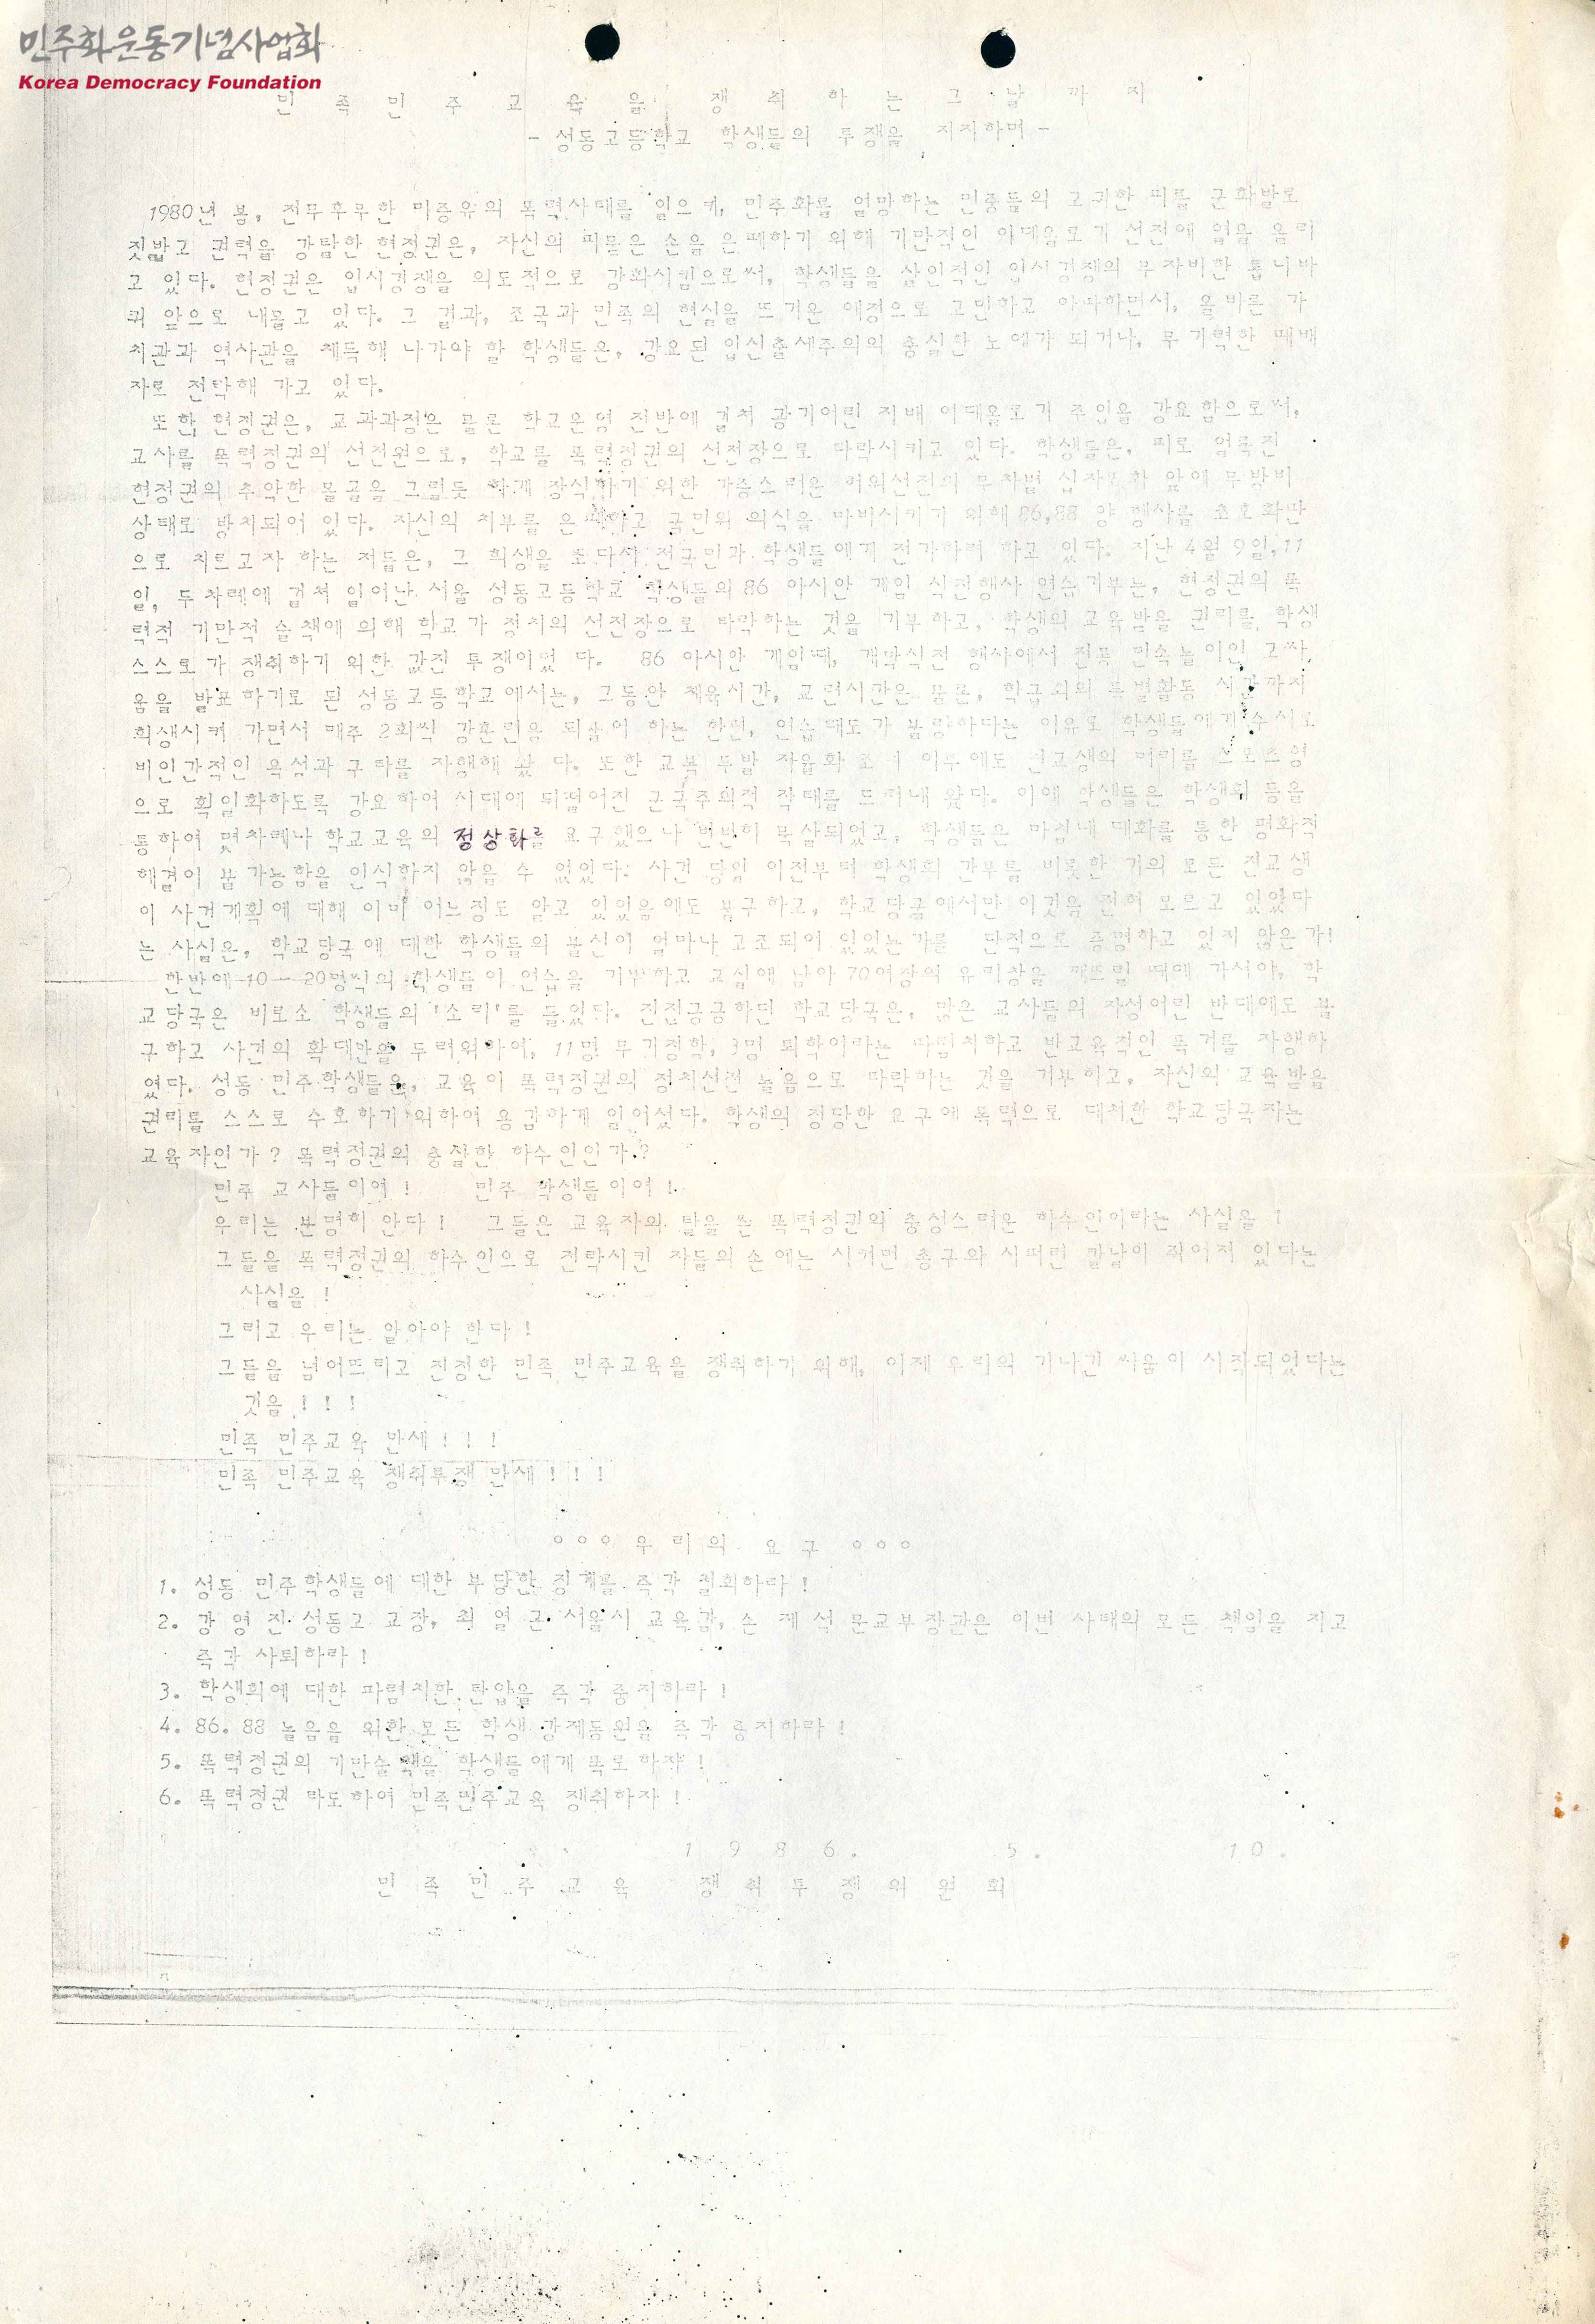 민주화운동기념사업회
Korea Democracy Foundation
민 족 민 주 교 육 을 쟁 취 하 는 그 날 까 지
- 성동고등학교 학생들의 투쟁을 지지하며 -
1980년 봄, 전무후무한 미증유의 폭력사태를 일으켜, 민주화를 열망하는 민중들의 고귀한 피를 군화발로
짓밟고 권력을 강탈한 현정권은, 자신의 피묻은 손을 은폐하기 위해 기만적인 이데올로기 선전에 열을 올리
고 있다. 현정권은 입시경쟁을 의도적으로 강화시킴으로써, 학생들을 살인적인 입시경쟁의 무자비한 톱니바
퀴 앞으로 내몰고 있다. 그 결과, 조국과 민족의 현실을 뜨거운 애정으로 고민하고 아파하면서, 올바른 가
치관과 역사관을 체득해 나가야 할 학생들은, 강요된 입신출세주의의 충실한 노예가 되거나, 무기력한 패배
자로 전락해 가고 있다.
또한 현정권은, 교과과정은 물론 학교운영 전반에 걸쳐 광기어린 지배 이데올로기 주입을 강요함으로써,
교사를 폭력정권의 선전원으로, 학교를 폭력정권의 선전장으로 타락시키고 있다. 학생들은, 피로 얼룩진
현정권의 추악한 몰골을 그럴듯 하게 장식하기 위한 가증스러운 허위선전의 무차별 십자포화 앞에 무방비
상태로 방치되어 있다. 자신의 치부를 은폐하고 국민의 의식을 마비시키기 위해 86,88 양 행사를 초호화판
으로 치르고자 하는 저들은, 그 희생을 또다시 전국민과 학생들에게 전가하려 하고 있다. 지난 4월 9일,11
일, 두차례에 걸쳐 일어난 서울 성동고등학교 학생들의 86 아시안 게임 식전행사 연습거부는, 현정권의 폭
력적 기만적 술책에 의해 학교가 정치의 선전장으로 타락하는 것을 거부하고, 학생의 교육받을 권리를 학생
스스로가 쟁취하기 위한 값진 투쟁이었 다. 86 아시안 게임때, 개막식전 행사에서 전통 민속놀이인 고싸
움을 발표하기로 된 성동고등학교에서는, 그동안 체육시간, 교련시간은 물론, 학급회의 특별활동 시간까지
희생시켜 가면서 매주 2회씩 강훈련을 되풀이 하는 한편, 연습태도가 불량하다는 이유로 학생들에게 수시로
비인간적인 욕설과 구타를 자행해 왔 다. 또한 교복 두발 자율화 조치 이후에도 전교생의 머리를 스포츠형
으로 획일화하도록 강요하여 시대에 뒤떨어진 군국주의적 작태를 드러내 왔다. 이에 학생들은 학생회 등을
통하여 몇차례나 학교교육의 정상화를 요구했으나 번번히 묵살되었고, 학생들은 마침내 대화를 통한 평화적
해결이 불가능함을 인식하지 않을 수 없었다. 사건 당일 이전부터 학생회 간부를 비롯한 거의 모든 전교생
이 사건계획에 대해 이미 어느정도 알고 있었음에도 불구하고, 학교당국에서만 이것을 전혀 모르고 있었다
는 사실은, 학교당국에 대한 학생들의 불신이 얼마나 고조되어 있었는가를 단적으로 증명하고 있지 않은가!
한반에 10 - 20명씩의 학생들이 연습을 거부하고 교실에 남아 70여장의 유리창을 깨뜨릴 때에 가서야, 학
교당국은 비로소 학생들의 '소리'를 들었다. 전전긍긍하던 학교당국은, 많은 교사들의 자성어린 반대에도 불
구하고 사건의 확대만을 두려워하여, 11명 무기정학, 3명 퇴학이라는 파렴치하고 반교육적인 폭거를 자행하
였다. 성동 민주학생들은, 교육이 폭력정권의 정치선전 놀음으로 타락하는 것을 거부하고, 자신의 교육받을
권리를 스스로 수호하기 위하여 용감하게 일어섰다. 학생의 정당한 요구에 폭력으로 대처한 학교당국자는
교육자인가? 폭력정권의 충실한 하수인인가?
민주 교사들이여 ! 민주 학생들이여 !
우리는 분명히 안다 ! 그들은 교육자의 탈을 쓴 폭력정권의 충성스러운 하수인이라는 사실을 !
그들을 폭력정권의 하수인으로 전락시킨 자들의 손에는 시커먼 총구와 시퍼런 칼날이 쥐어져 있다는
사실을 !
그리고 우리는 알아야 한다 !
그들을 넘어뜨리고 진정한 민족 민주교육을 쟁취하기 위해, 이제 우리의 기나긴 싸움이 시작되었다는
것을 ! ! !
민족 민주교육 만세 ! ! !
민족 민주교육 쟁취투쟁 만세 ! ! !
○○○ 우 리 의 요 구 ○○○
1. 성동 민주학생들에 대한 부당한 징계를 즉각 철회하라 !
2. 강 영 진 성동고 교장, 최 열 곤 서울시 교육감, 손 제 석 문교부장관은 이번 사태의 모든 책임을 지고
즉각 사퇴하라 !
3. 학생회에 대한 파렴치한 탄압을 즉각 중지하라 !
4. 86. 88 놀음을 위한 모든 학생 강제동원을 즉각 중지하라 !
5. 폭력정권의 기만술책을 학생들에게 폭로하자 !
6. 폭력정권 타도하여 민족민주교육 쟁취하자 !
1 9 8 6. 5. 10.
민 족 민 주 교 육 쟁 취 투 쟁 위 원 회